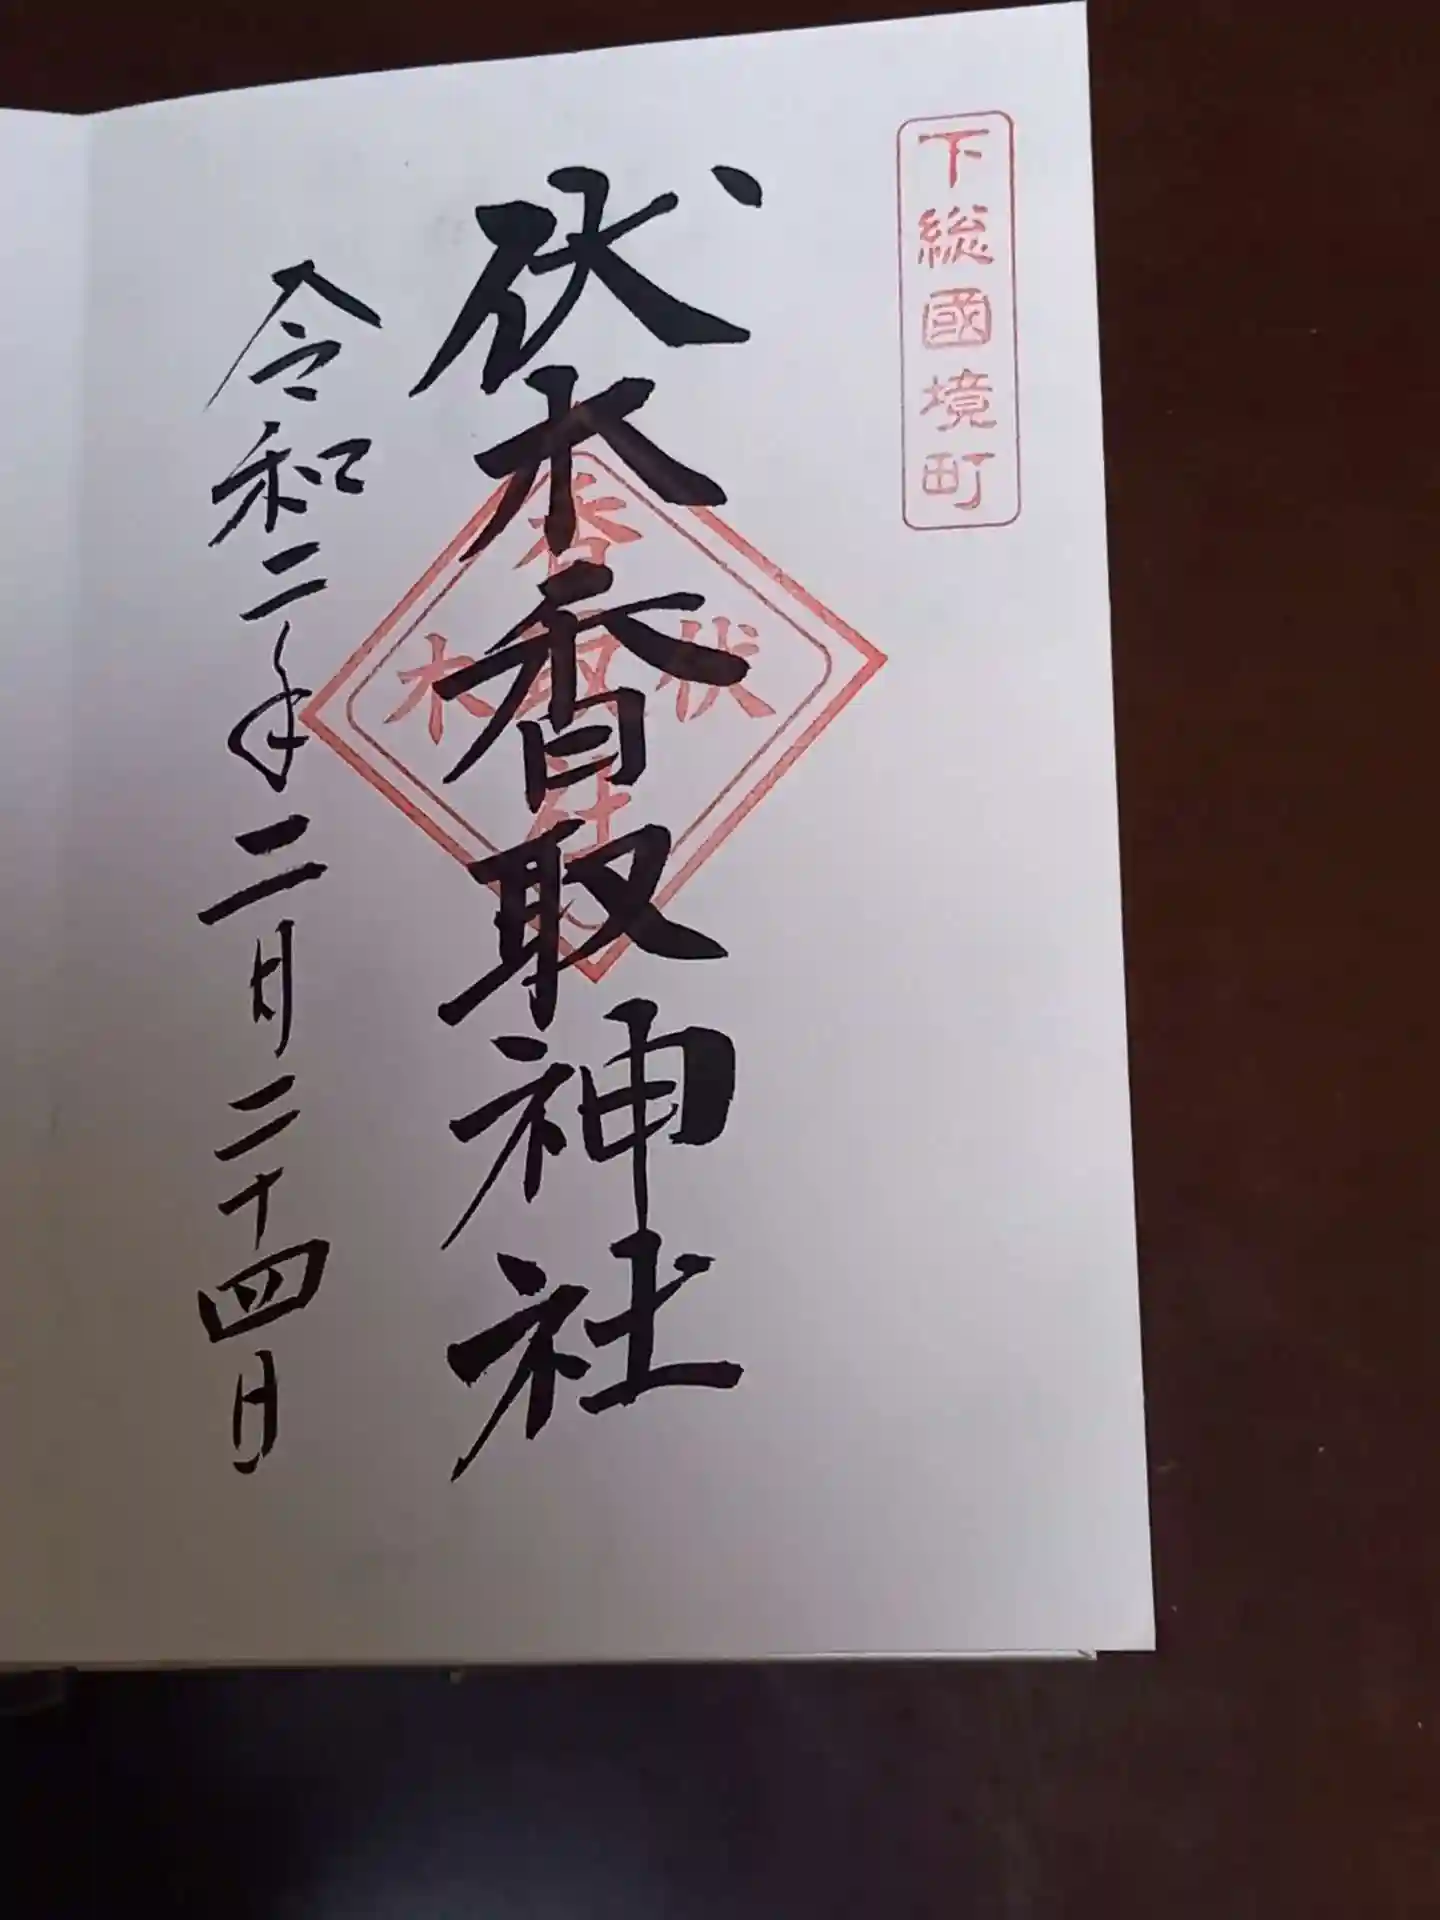 下総國境町
伏木香取神社
伏木
香取社
令和二年二月二十四日